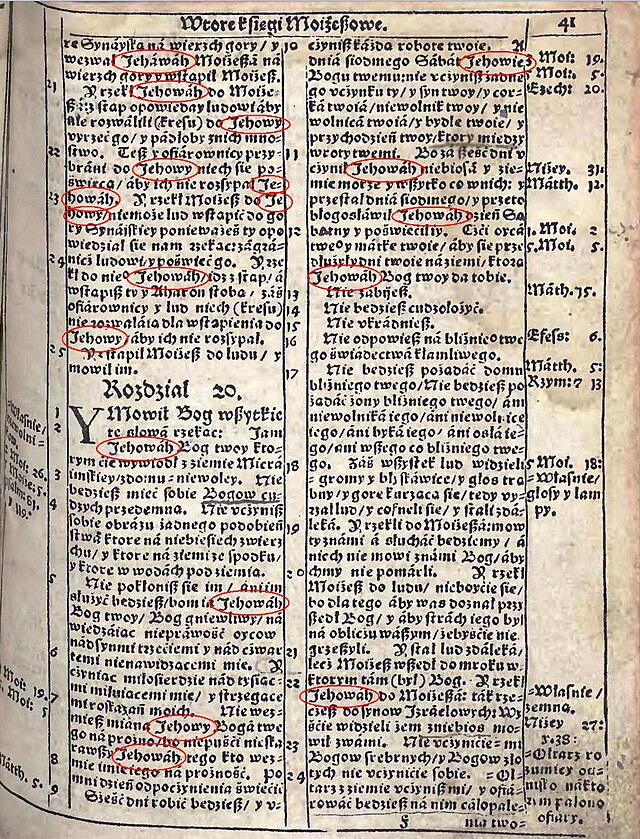 Wtore Księgi Moiżeßowe.
41
re Synáyska ná wierzch gory / y
wezwał Jeháwáh Moiżeßá ná
wierzch gory y wstąpił Moiżeß.
21 Y rzekł Jehowáh do Moiże-
ßá: zstąp opowiedáy ludowi áby
nie rozwálili (kresu) do Jehowy
wyrzec go / y pádłoby z nich mno-
22 stwo. Też y ofiárownicy przy-
bráni do Jehowy niech się po-
święcą / áby ich nie rozsypał Je-
23 howáh. Y rzekł Moiżeß do Je-
howy / niemoże lud wstąpić do go
ry Synáiskiey ponieważeś ty opo
wiedział się nam rzekąc: zágrá-
24 nicz ludowi / y poświęć go. Y rze
kł do nie° Jehowáh / idz zstąp / á
wstąpiß ty y Aháron stobą / záś
ofiárownicy y lud niech (kresu)
nie rozwáláią dla wstąpienia do
Jehowy / áby ich nie rozsypał.
25 Y zstąpił Moiżeß do ludu / y
mowił im.
Rozdział 20.
1 Y Mowił Bog wßytkie
2 te słowá rzekąc: Jam
Jehowáh Bog twoy kto-
rym cię wywiodł z ziemie Micrá
3 imskiey / z domu niewoley. Nie
będzieß mieć sobie Bogow cu-
4 dzych przedemną. Nie vczyniß
sobie obrázu żadnego podobień
stwá ktore ná niebiesiech zwierz
chu / y ktore ná ziemi ze spodku /
y ktore w wodách pod ziemią.
5 Nie pokłoniß się im / áni im
służyć będzieß / bom ia Jehowáh
Bog twoy / Bog gniewliwy / ná
wiedzáiąc niepráwość oycow
nád synmi trzeciemi y nád czwar
6 temi nienawidzącemi mię. Y
czyniąc miłosierdzie nád tysiąc-
mi miłuiącemi mię / y strzegące
7 mi roskazań moich. Nie wez-
mieß imiená Jehowy Bogá twe
go ná prożno / bo nie puści nieská
rawßy Jehowáh tego kto wez-
8 mie imię iego ná prożność. Po
mni dzień odpoczynienia święcić
9 Sześć dni robić będzieß / y v-
10 czyniß káżdą robotę twoię. A
dniá siodmego Sábát Jehowie
Bogu twemu: nie vczyniß żadne
go vczynku ty / y syn twoy / y cor-
ká twoiá / niewolnik twoy / y nie
wolnicá twoiá / y bydłe twoie / y
przychodzień twoy / ktory miedzy
11 wroty twemi. Bo zá ßeść dni v
czynił Jehowáh niebiosá y zie-
mię morze y wßytko co w nich: y
przestał dniá siodmego / y przeto
błogosłáwił Jehowáh dzień Sá
12 bátny y poświęcił ty. Czći oycá
twe° y mátkę twoię / áby się prze
dłużyły dni twoie ná ziemi / ktorą
Jehowáh Bog twoy da tobie.
13 Nie zábijeß.
14 Nie będzieß cudzołożyć.
15 Nie vkrádnieß.
16 Nie odpowieß ná bliźnie° twe
go świádectwá kłamliwego.
17 Nie będzieß pożądáć domu
bliźnego twego / Nie będzieß po
żądáć żony bliźniego twego / áni
niewolniká iego / áni niewolnice
iego / áni byká iego / áni osłá ie-
go / áni wßego co bliźniego twe-
18 go. Záś wßystek lud widzieli
gromy y błyskáwice / y głos trą
by / y gorę kurzącą się / tedy vy-
źrzał lud / y cofnęli się / y stáli z dá-
19 leká. Y rzekli do Moiżeßá: mow
ty z námi á słucháć będziemy / á
niech nie mowi z námi Bog / áby
20 chmy nie pomárli. Y rzekł
Moiżeß do ludu / nie boycie się /
bo dla tego áby was doznał przy
ßedł Bog / y áby strách iego był
ná obliczu wáßym / żebyście nie
21 grzeßyli. Y stał lud zdáleká /
lecz Moiżeß wßedł do mroku w
22 ktorym tám (był) Bog. Y rzekł
Jehowáh do Moiżeßá: ták rze-
czeß do synow Jzráelowych: Wy
ście widzieli żem z niebios mo-
23 wił z wámi. Nie vczynicie mi
Bogow srebrnych / y Bogow zło
24 tych nie vczynicie sobie. Oł-
tarz z ziemie vczyniß mi / y ofiá-
rowáć będzieß ná nim cáłopale-
F
niá two-
Moi: 19.
Moi: 5.
Ezech: 20.
Niżey. 31.
Mátth. 12.
1. Moi. 2
5. Moi. 5.
Máth. 15.
Efes: 6.
Mátth. 5:
Rzym: 7 13
5 Moi. 18:
Własnie /
głosy y lam
py.
Własnie /
zemną.
Niżey 27:
v. 38:
Ołtarz ro
zumiey
ofiáry.
Własnie /
Moi. 26.
Moi: 19.
Moi: 5
Mátth. 5.